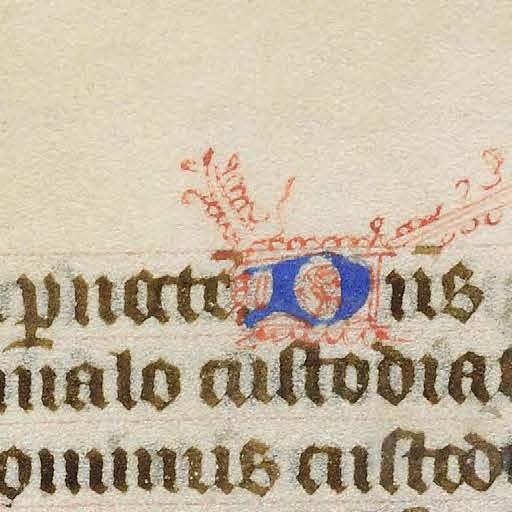 pnocte. Dn̄s
malo custodiat
ominus custod